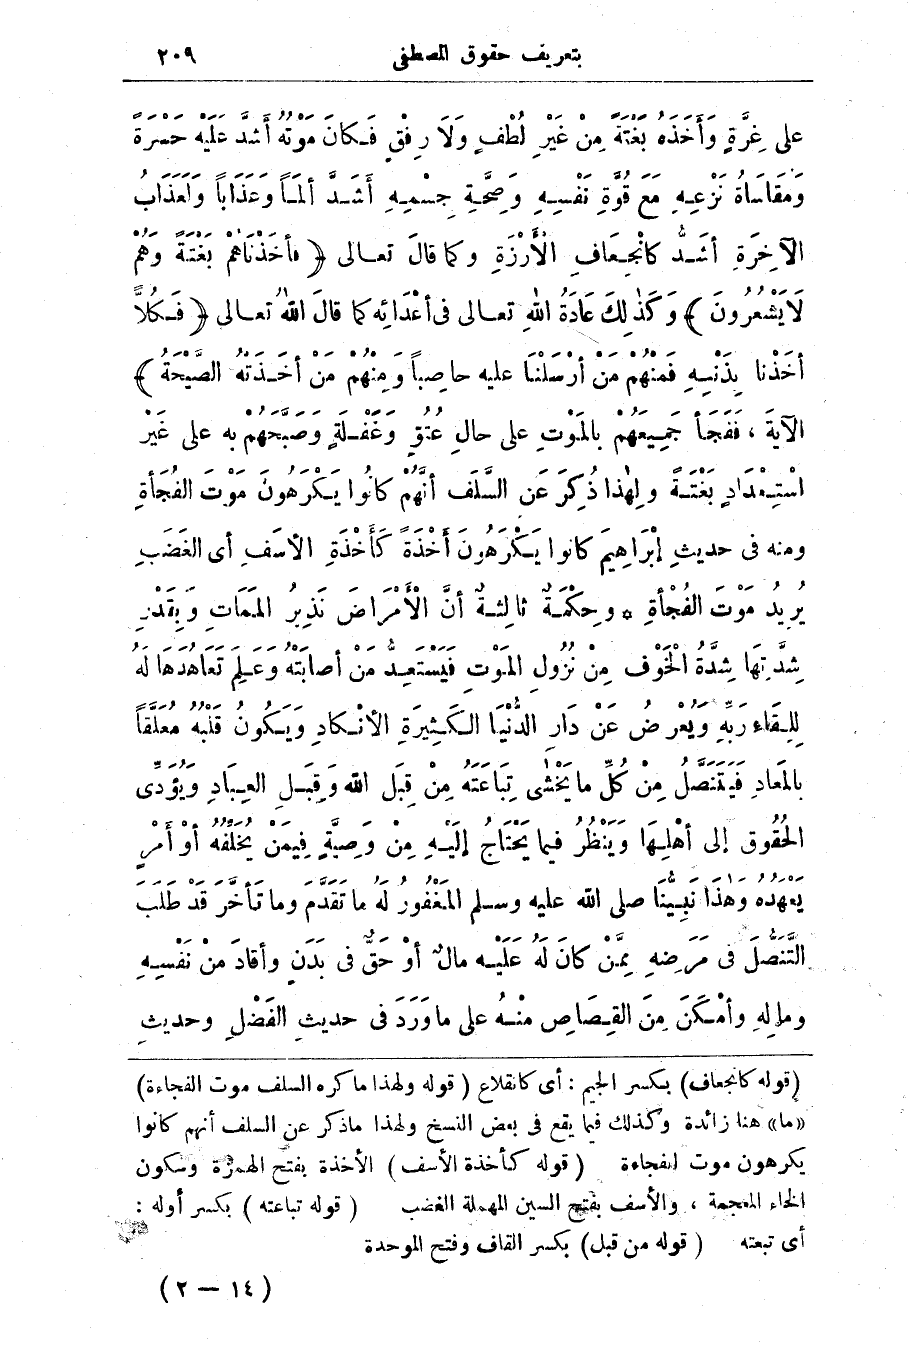 بتعريف حقوق المصطفى ٢٠٩
على غِرَّةٍ وَأَخَذَهُ بَغْتَةً مِنْ غَيْرِ لُطْفٍ وَلَا رِفْقٍ فَكَانَ مَوْتُهُ أَشَدَّ عَلَيْهِ حَسْرَةً
وَمُقَاسَاةُ نَزْعِهِ مَعَ قُوَّةِ نَفْسِهِ وَصِحَّةِ جِسْمِهِ أَشَدَّ أَلَمًا وَعَذَابًا وَلَعَذَابُ
الآخِرَةِ أَشَدُّ كَانْجِعَافِ الْأَرْزَةِ وكما قالَ تعالى ﴿ فأخَذْنَاهُمْ بَغْتَةً وَهُمْ
لَا يَشْعُرُونَ ﴾ وَكَذٰلِكَ عَادَةُ اللهِ تعالى فى أَعْدَائِه كما قالَ اللهُ تعالى ﴿ فَكُلاًّ
أخَذْنَا بِذَنْبِهِ فَمِنْهُمْ مَنْ أَرْسَلْنَا عليه حاصِبًا وَمِنْهُمْ مَنْ أَخَذَتْهُ الصَّيْحَةُ ﴾
الآيةَ ، فَفَجَأَ جَمِيعَهُمْ بالمَوْتِ على حالِ عُتُوٍّ وَغَفْلَةٍ وَصَبَّحَهُمْ به على غَيْرِ
اسْتِعْدَادٍ بَغْتَةً ولهٰذا ذُكِرَ عَنِ السَّلَفِ أَنَّهُمْ كانُوا يَكْرَهُونَ مَوْتَ الفُجَأةِ
ومنه فى حديثِ إبْرَاهِيمَ كانوا يَكْرَهُونَ أَخْذَةً كَأَخْذَةِ الأسَفِ أى الغَضَبِ
يُرِيدُ مَوْتَ الفُجْأةِ * وحِكْمَةٌ ثالِثةٌ أنَّ الْأَمْرَاضَ نَذِيرُ المَمَاتِ وَبِقَدْرِ
شِدَّتِهَا شِدَّةُ الْخَوْفِ مِنْ نُزُولِ المَوْتِ فَيَسْتَعِدُّ مَنْ أصابَتْهُ وعَلِمَ تَعَاهُدَهَا لَهُ
لِلِقَاءِ رَبِّهِ وَيُعْرِضُ عَنْ دَارِ الدُّنْيَا الكَثِيرَةِ الأنْكَادِ وَيَكُونُ قَلْبُهُ مُعَلَّقًا
بالمَعَادِ فَيَتَنَصَّلُ مِنْ كُلِّ ما يَخْشَى تِبَاعَتَهُ مِنْ قِبَلِ اللهِ وَقِبَلِ العِبَادِ وَيُؤَدِّى
الحُقُوقَ إلى أهْلِهَا وَيَنْظُرُ فيما يَحْتَاجُ إلَيْهِ مِنْ وَصِيَّةٍ فِيمَنْ يُخَلِّفُهُ أوْ أمْرٍ
يَعْهَدُهُ وَهٰذَا نَبِيُّنَا صلى الله عليه وسلم المَغْفُورُ لَهُ ما تَقَدَّمَ وما تَأَخَّرَ قَدْ طَلَبَ
التَّنَصُّلَ فى مَرَضِهِ مِمَّنْ كانَ لَهُ عَلَيْه مالٌ أوْ حَقٌّ فى بَدَنٍ وأقادَ مِنْ نَفْسِهِ
ومالِهِ وأمْكَنَ مِنَ القِصَاصِ مِنْهُ على ما وَرَدَ فى حديثِ الفَضْلِ وحديثِ
(قوله كانجعاف) بكسر الجيم : أى كانقلاع ( قوله ولهذا ما كره السلف موت الفجاءة)
«ما» هنا زائدة وكذلك فيما يقع فى بعض النسخ ولهذا ماذكر عن السلف أنهم كانوا
يكرهون موت الفجاءة ( قوله كأخذة الأسف ) الأخذة بفتح الهمزة وسكون
الخاء المعجمة ، والأسف بفتح السين المهملة الغضب ( قوله تباعته ) بكسر أوله :
أى تبعته ( قوله من قبل) بكسر القاف وفتح الموحدة
( ١٤ — ٢ )